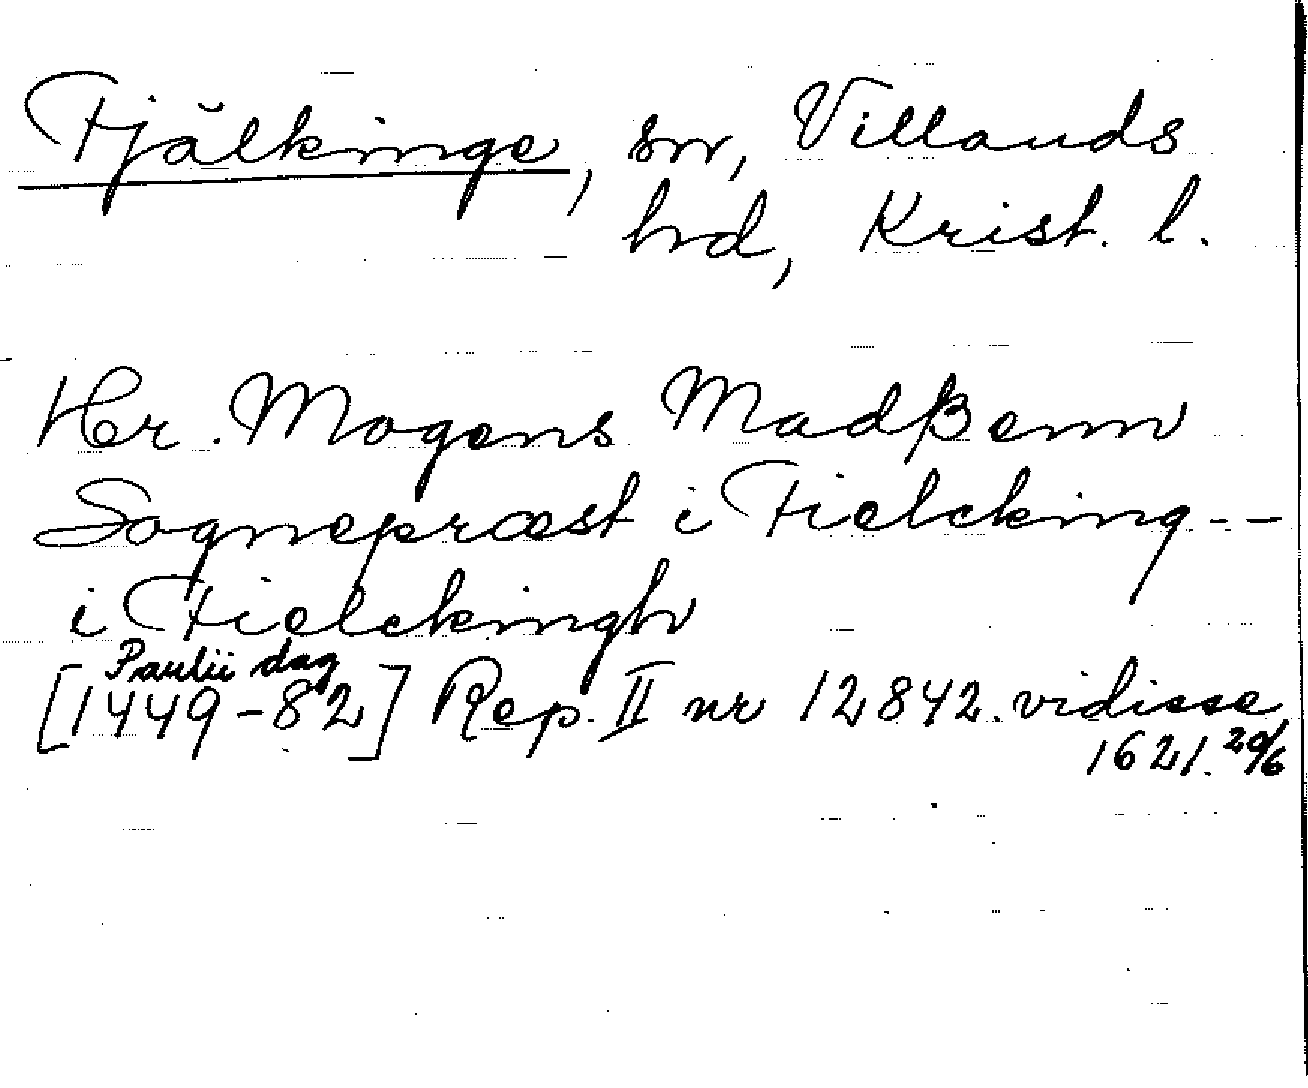 Fjälkinge, sn, Villands
hd, Krist. l.
Hr. Mogens Madßenn
Sognepræst i Fielcking--
i Fielckingh
Paulii dag
[1449-82] Rep. II nr 12842. vidisse
1621. 20/6